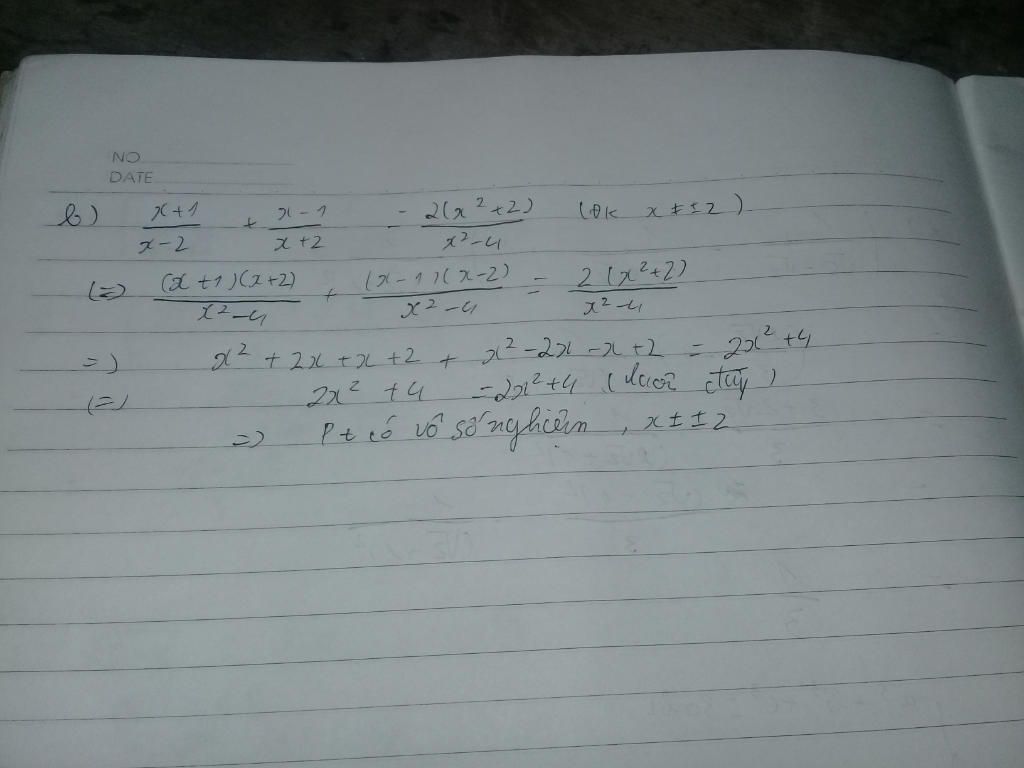 NO
DATE
b) \frac{x+1}{x-2} + \frac{x-1}{x+2} - \frac{2(x^2+2)}{x^2-4} (ĐK x ≠ ±2)
(=) \frac{(x+1)(x+2)}{x^2-4} + \frac{(x-1)(x-2)}{x^2-4} = \frac{2(x^2+2)}{x^2-4}
=) x^2 + 2x + x + 2 + x^2 - 2x - x + 2 = 2x^2 + 4
(=) 2x^2 + 4 = 2x^2 + 4 (luôn đúng)
=) Pt có vô số nghiệm, x ≠ ±2